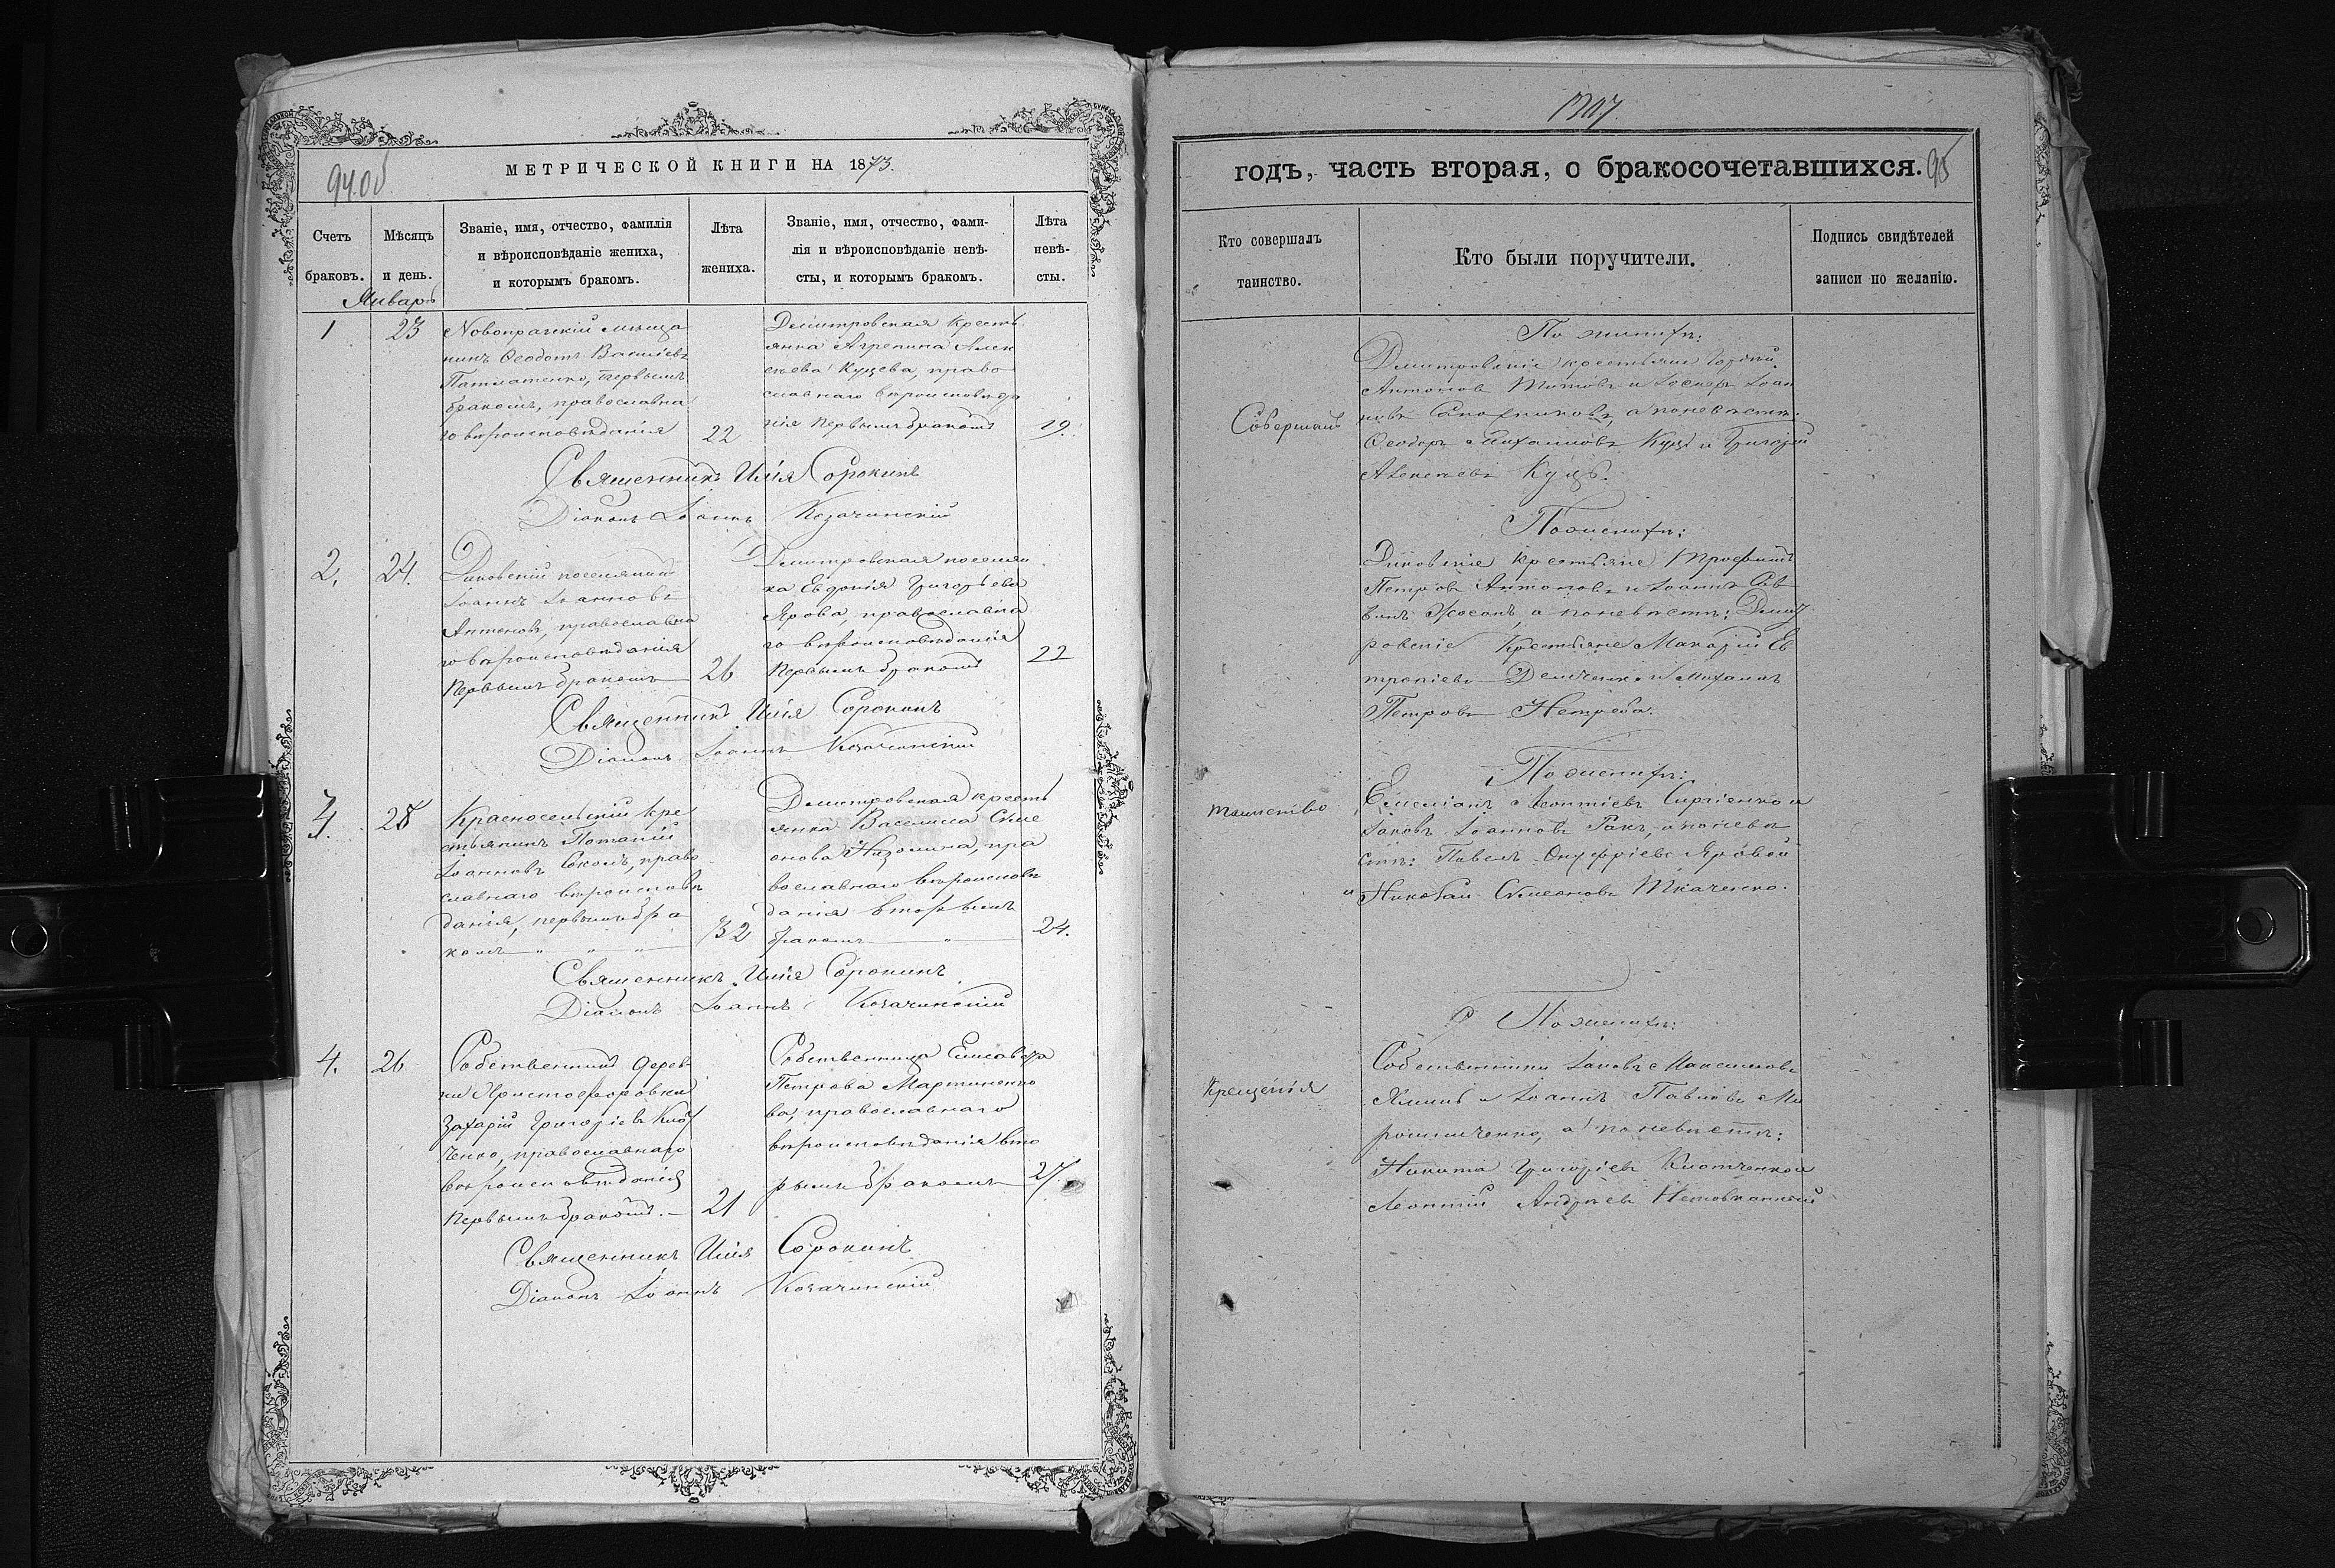 94 об
МЕТРИЧЕСКОЙ КНИГИ НА 1873.
Счетъ браковъ.
Мѣсяцъ и день.
Званіе, имя, отчество, фамилія
и вѣроисповѣданіе жениха,
и которымъ бракомъ.
Лѣта
жениха.
Званіе, имя, отчество, фами-
лія и вѣроисповѣданіе невѣ-
сты, и которымъ бракомъ.
Лѣта
невѣ-
сты.
Январь
1
23
Новопрагскій мѣща
нинъ Ѳеодотъ Василіевъ
первымъ
бракомъ, православна
го вѣроисповѣданія
22
Дмитровская кресть
янка Агрепина Алек
сѣева Куцева, право
славнаго вѣроисповѣда
нія первымъ бракомъ
19.
Священникъ Илія Сорокинъ
Діаконъ Іоаннъ Козачинскій
2.
24.
Диковскій поселянинъ
Іоаннъ Іоанновъ
Антоновъ, православна
го вѣроисповѣданія
первымъ бракомъ
26
Дмитровская поселян
ка Евдокія Григорьева
Ярова, православна
го вѣроисповѣданія
первымъ бракомъ
22
Священникъ Илія Сорокинъ
Діаконъ Іоаннъ Козачинскій
3.
25
Красносельскій кре
стьянинъ Потапій
Іоанновъ Соколъ, право
славнаго вѣроисповѣ
данія, первымъ бра
комъ
32
Дмитровская кресть
янка Василиса Симе
онова пра
вославнаго вѣроисповѣ
данія вторымъ
бракомъ
24.
Священникъ Илія Сорокинъ
Діаконъ Іоаннъ Козачинскій
4.
26
Собственникъ дерев-
ни Христофоровки
Захарій Григоріевъ
православнаго
вѣроисповѣданія
первымъ бракомъ.
21
Собственница Елисавета
Петрова Мартиненко
ва, православнаго
вѣроисповѣданія вто
рымъ бракомъ
27.
Священникъ Илія Сорокинъ
Діаконъ Іоаннъ Козачинскій
годъ, часть вторая, о бракосочетавшихся.
95
Кто совершалъ
таинство.
Кто были поручители.
Подпись свидѣтелей
записи по желанію.
Совершалъ
таинство
крещенія
По женихѣ:
Дмитровскіе крестьяне
Антоновъ Титовъ и Іосифъ Іоан
новъ а по невѣстѣ:
Ѳеодоръ Михаиловъ Куцъ и Григорій
Алексѣевъ Куцъ.
По женихѣ:
Диковскіе крестьяне Трофимъ
Петровъ Антоновъ и Іоаннъ Сав
винъ а по невѣстѣ: Дмит
ровскіе крестьяне Макарій Ев
тропіевъ Демченко и Михаилъ
Петровъ Нетреба.
По женихѣ:
Емеліанъ Леонтіевъ Сиргіенко и
Іаковъ Іоанновъ Ракъ, а по невѣ
стѣ: Павелъ Онуфріевъ Яровой
и Николай Симеоновъ Ткаченко.
По женихѣ:
Собственники Іаковъ Максимовъ
и Іоаннъ Павловъ Ми
рошниченко, а по невѣстѣ:
Никита Григоріевъ
Леонтій Андреевъ